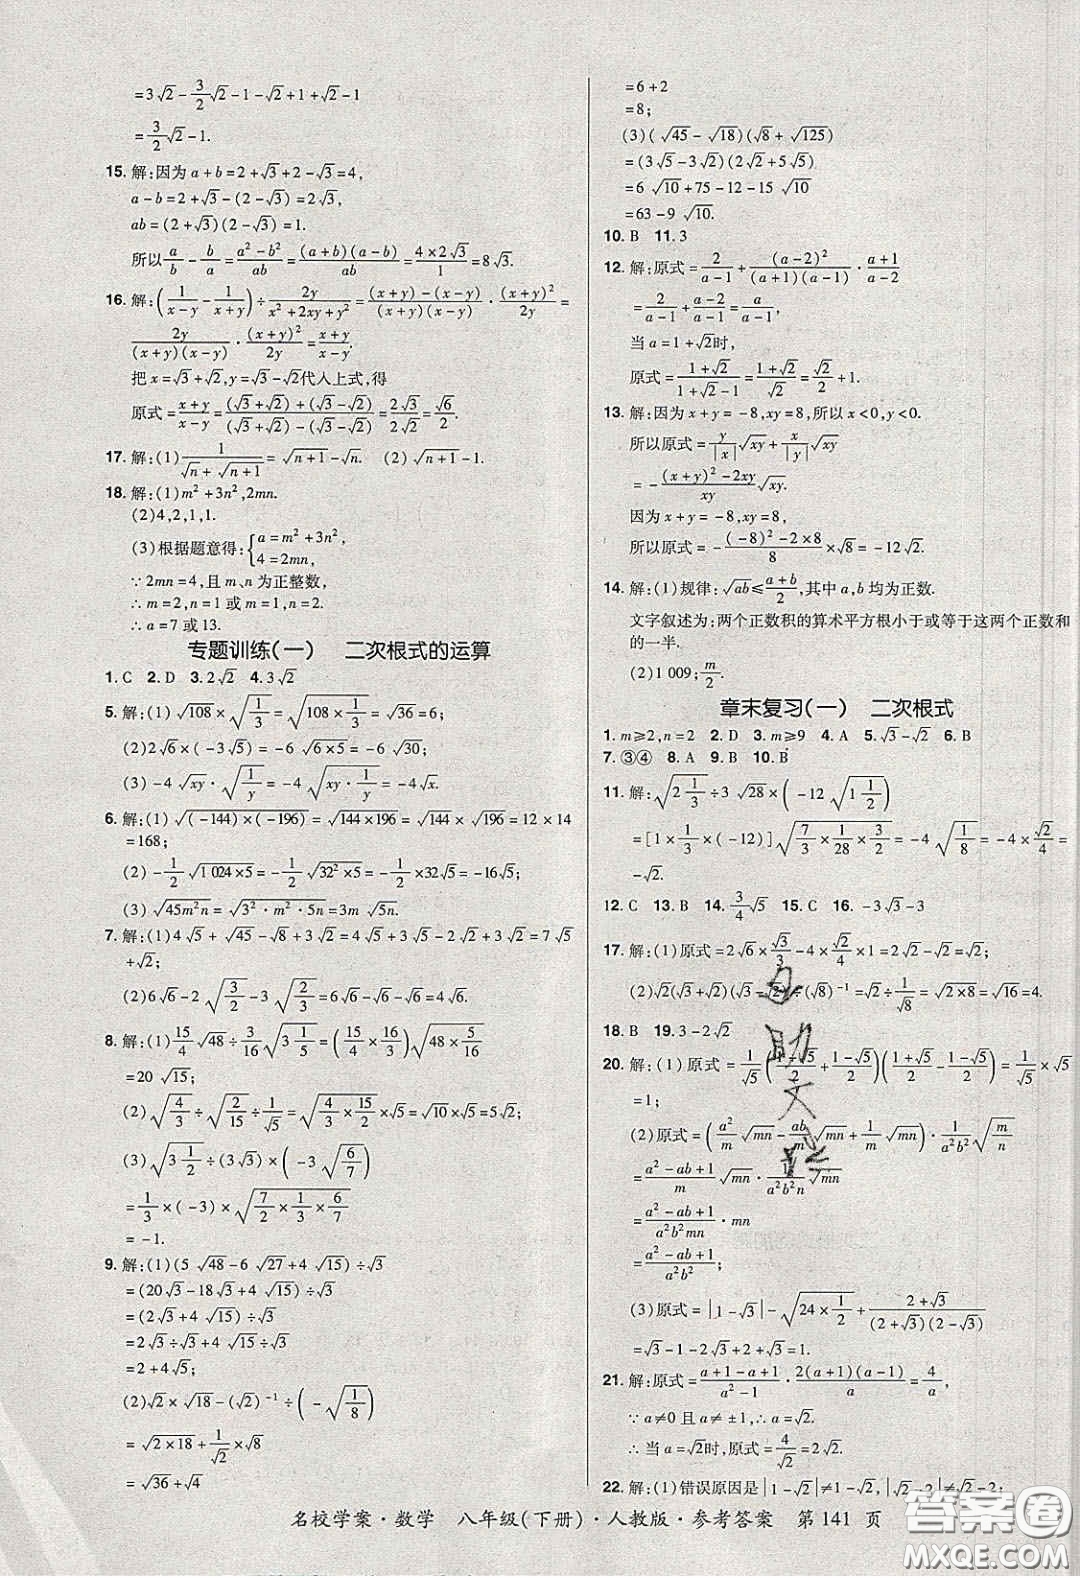 =3√2-3/2√2-1-√2+1+√2-1
=3/2√2-1.
15.解:因为a+b=2+√3+2-√3=4,
a-b=2+√3-(2-√3)=2√3,
ab=(2+√3)(2-√3)=1.
所以a/b-b/a=(a²-b²)/ab=(a+b)(a-b)/ab=(4×2√3)/1=8√3.
16.解:(1/(x-y)-1/(x+y))÷2y/(x²+2xy+y²)=((x+y)-(x-y))/((x+y)(x-y))·(x+y)²/2y=
2y/((x+y)(x-y))·(x+y)²/2y=(x+y)/(x-y).
把x=√3+√2,y=√3-√2代人上式,得
原式=(x+y)/(x-y)=((√3+√2)+(√3-√2))/((√3+√2)-(√3-√2))=2√3/2√2=√6/2.
17.解:(1)1/(√n+√(n+1))=√(n+1)-√n. (2)√(n+1)-√n.
18.解:(1)m²+3n²,2mn.
(2)4,2,1,1.
(3)根据题意得:{a=m²+3n², 4=2mn,
∵2mn=4,且m、n为正整数,
∴m=2,n=1或m=1,n=2.
∴a=7或13.
专题训练(一) 二次根式的运算
1.C 2.D 3.2√2 4.3√2
5.解:(1)√108×√(1/3)=√(108×1/3)=√36=6;
(2)2√6×(-3√5)=-6√(6×5)=-6√30;
(3)-4√xy·√(1/x)=-4√(xy·1/x)=-4√y.
6.解:(1)√((-144)×(-196))=√(144×196)=√144×√196=12×14
=168;
(2)-1/2√(1 024×5)=-1/2√(32²×5)=-1/2×32√5=-16√5;
(3)√(45m²n)=√(3²·m²·5n)=3m√5n.
7.解:(1)4√5+√45-√8+3√2=4√5+3√5-2√2+3√2=7√5
+√2;
(2)6√6-2√(3/2)-3√(2/3)=6√6-√6-√6=4√6.
8.解:(1)15/4√48÷3/16√(3 1/5)=(15/4×16/3)√(48×5/16)
=20√15;
(2)√(4/3)÷√(2/15)÷1/√5=√(4/3×15/2)×√5=√10×√5=5√2;
(3)√(3 1/2)÷(3√3)×(-3√(6/7))
=1/3×(-3)×√(7/2×1/3×6/7)
=-1.
9.解:(1)(5√48-6√27+4√15)÷√3
=(20√3-18√3+4√15)÷√3
=(2√3+4√15)÷√3
=2√3÷√3+4√15÷√3
=2+4√5;
(2)√2×√18-(√2)⁻¹÷(-√(1/8))
=√(2×18)+1/√2×√8
=√36+√4
=6+2
=8;
(3)(√45-√18)(√8+√125)
=(3√5-3√2)(2√2+5√5)
=6√10+75-12-15√10
=63-9√10.
10.B 11.3
12.解:原式=2/(a-1)+(a-2)²/((a+1)(a-1))·(a+1)/(a-2)
=2/(a-1)+(a-2)/(a-1)=a/(a-1),
当a=1+√2时,
原式=(1+√2)/(1+√2-1)=(1+√2)/√2=√2/2+1.
13.解:因为x+y=-8,xy=8,所以x<0,y<0.
所以原式=y/|x|√xy+x/|y|√xy
=-((x+y)²-2xy)/xy√xy.
因为x+y=-8,xy=8,
所以原式=-((-8)²-2×8)/8×√8=-12√2.
14.解:(1)规律:√ab≤(a+b)/2,其中a,b均为正数.
文字叙述为:两个正数积的算术平方根小于或等于这两个正数和
的一半.
(2)1 009;m/2.
章末复习(一) 二次根式
1.m≥2,n=2 2.D 3.m≥9 4.A 5.√3-√2 6.B
7.③④ 8.A 9.B 10.B
11.解:√(2 1/3)÷3√28×(-12√(1 1/2))
=[1×1/3×(-12)]√(7/3×1/28×3/2)=-4√(1/8)=-4×√2/4=
-√2.
12.C 13.B 14.3/4√5 15.C 16.-3√3-3
17.解:(1)原式=2√6×√3/3-4×√2/4×1=2√2-√2=√2;
(2)√2(√3+√2)(√3-√2)÷(√8)⁻¹=√2÷1/√8=√(2×8)=√16=4.
18.B 19.3-2√2
20.解:(1)原式=1/√5((1+√5)/2+(1-√5)/2)((1+√5)/2-(1-√5)/2)=1/√5×√5
=1;
(2)原式=(a²/m√mn-ab/m√mn+1/m√mn)·1/a²b²√(m/n)
=(a²-ab+1)/m√mn·1/a²b²n√mn
=(a²-ab+1)/a²b²mn·mn
=(a²-ab+1)/a²b²;
(3)原式=|1-√3|-√(24×1/2)+(2+√3)/((2+√3)(2-√3))
=√3-1-2√3+2+√3=1.
21.解:原式=(a+1-a+1)/(a²-1)·2(a+1)(a-1)/a=4/a,
∵a≠0且a≠±1,∴a=√2.
∴当a=√2时,原式=4/√2=2√2.
22.解:(1)错误原因是|1-√2|≠1-√2,|√2-2|≠√2-2;
名校学案·数学 八年级(下册)·人教版·参考答案 第141页
答案圈
MXQE.COM